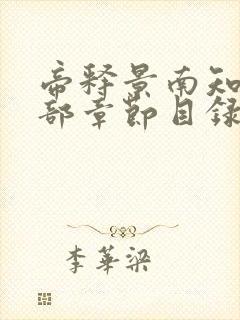 帝释景南知
部章節目録
李華梁